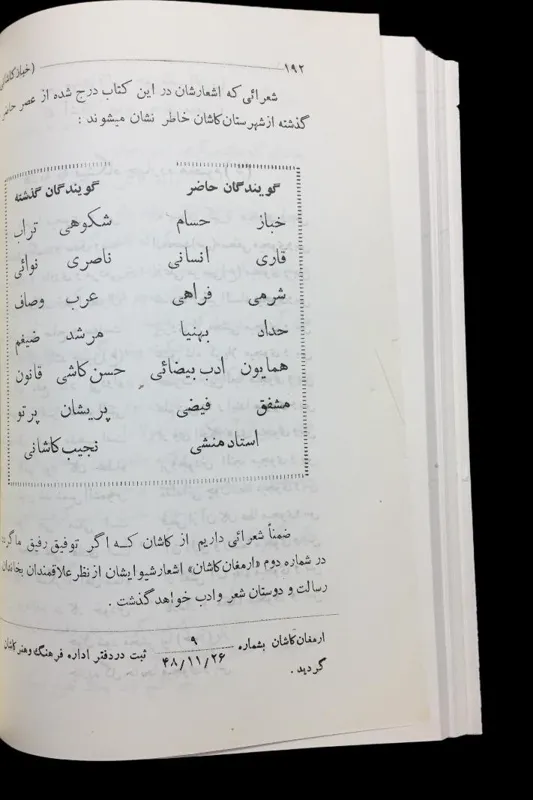 ۱۹۲ (خبازکاشانی
شعرائی که اشعارشان در این کتاب درج شده از عصر حاضر
گذشته از شهرستان کاشان خاطر نشان میشوند :
گویندگان حاضر گویندگان گذشته
خباز حسام شکوهی تراب
قاری انسانی ناصری نوائی
شرمی فراهی عرب وصاف
حداد بهنیا مرشد ضیغم
همایون ادب بیضائی حسن کاشی قانون
مشفق فیضی پریشان پرتو
استاد منشی نجیب کاشانی
ضمناً شعرائی داریم از کاشان کـه اگر توفیق رفیق ما گردد
در شماره دوم «ارمغان کاشان» اشعار شیوایشان از نظر علاقمندان بخاندان
رسالت و دوستان شعر و ادب خواهد گذشت .
ارمغان کاشان بشماره ۹ / ۴۸/۱۱/۲۶ ثبت در دفتر اداره فرهنگ و هنر کاشان
گردید .